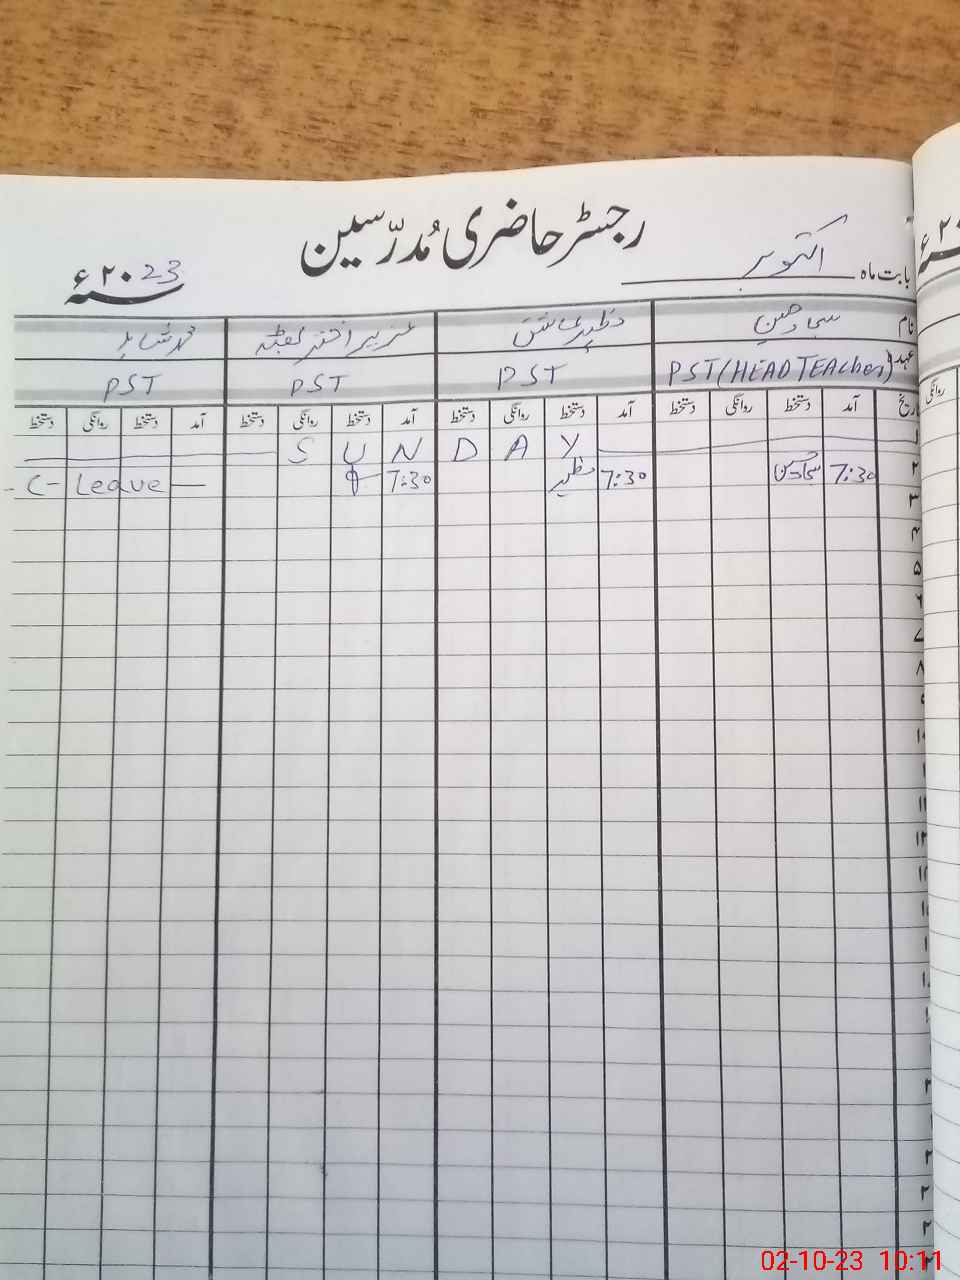 رجسٹر حاضری مُدرّسین
بابت ماہ اکتوبر سنہ ۲۰23ء
نام سجاد حسین ظہیر عباس عزیر اختر بھٹہ محمد شاہد
عہدہ PST (HEAD TEAcher) PST PST PST
تاریخ آمد دستخط روانگی دستخط آمد دستخط روانگی دستخط آمد دستخط روانگی دستخط آمد دستخط روانگی دستخط
۱ SUNDAY
۲ 7:30 سجاد حسین 7:30 ظہیر 7:30 C- Leave
۳
۴
۵
۶
۷
۸
۹
۱۰
02-10-23 10:11